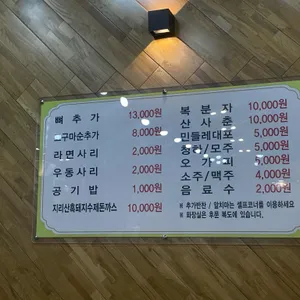 뼈 추 가 13,000원
고구마순추가 8,000원
라 면 사 리 2,000원
우 동 사 리 2,000원
공 기 밥 1,000원
지리산흑돼지수제돈까스 10,000원
복 분 자 10,000원
산 사 춘 10,000원
민들레대포 5,000원
청하/모주 5,000원
오 가 피 5,000원
소주/맥주 4,000원
음 료 수 2,000원
※ 추가반찬 / 앞치마는 셀프코너를 이용하세요
※ 화장실은 후문 복도에 있습니다.